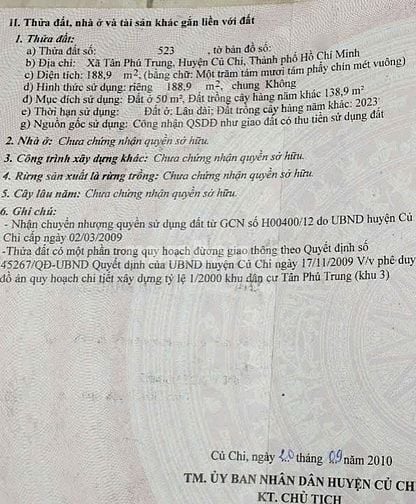 II. Thửa đất, nhà ở và tài sản khác gắn liền với đất
1. Thửa đất:
a) Thửa đất số: 523 , tờ bản đồ số:
b) Địa chỉ: Xã Tân Phú Trung, Huyện Củ Chi, Thành phố Hồ Chí Minh
c) Diện tích: 188,9 m², (bằng chữ: Một trăm tám mươi tám phẩy chín mét vuông)
d) Hình thức sử dụng: riêng 188,9 m², chung Không
đ) Mục đích sử dụng: Đất ở 50 m², Đất trồng cây hàng năm khác 138,9 m²
e) Thời hạn sử dụng: Đất ở: Lâu dài; Đất trồng cây hàng năm khác: 2023
g) Nguồn gốc sử dụng: Công nhận QSDĐ như giao đất có thu tiền sử dụng đất
2. Nhà ở: Chưa chứng nhận quyền sở hữu.
3. Công trình xây dựng khác: Chưa chứng nhận quyền sở hữu.
4. Rừng sản xuất là rừng trồng: Chưa chứng nhận quyền sở hữu.
5. Cây lâu năm: Chưa chứng nhận quyền sở hữu.
6. Ghi chú:
- Nhận chuyển nhượng quyền sử dụng đất từ GCN số H00400/12 do UBND huyện Củ
Chi cấp ngày 02/03/2009
-Thửa đất có một phần trong quy hoạch đường giao thông theo Quyết định số
45267/QĐ-UBND Quyết định của UBND huyện Củ Chi ngày 17/11/2009 V/v phê duy
đồ án quy hoạch chi tiết xây dựng tỷ lệ 1/2000 khu dân cư Tân Phú Trung (khu 3)
Củ Chi, ngày 20 tháng 09 năm 2010
TM. ỦY BAN NHÂN DÂN HUYỆN CỦ CH
KT. CHỦ TỊCH